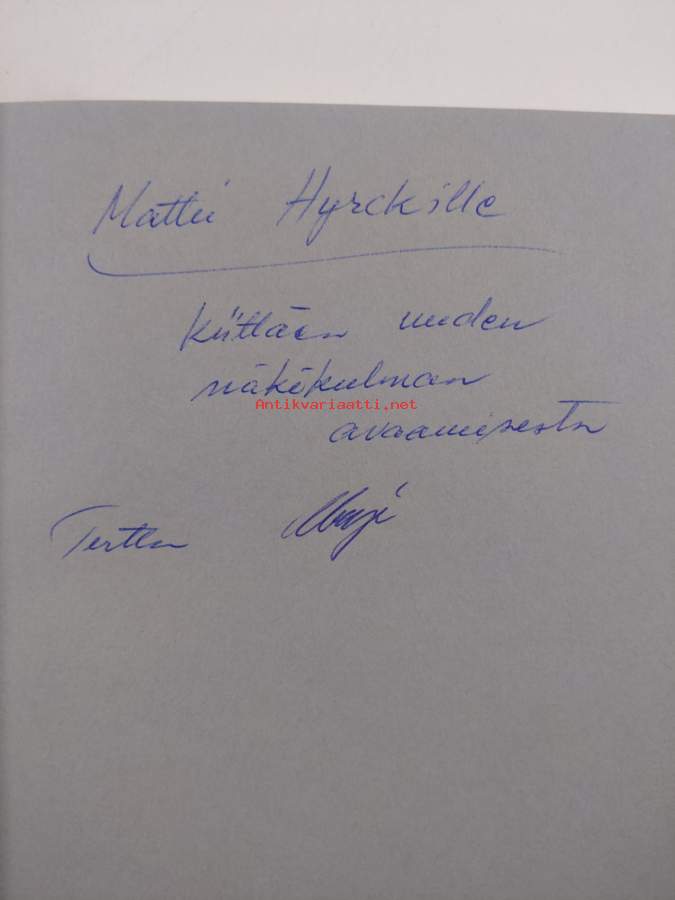 Matti Hyrckille
Kiittäen uuden
näkökulman
Antikvariaatti.net
avaamisesta
Terttu